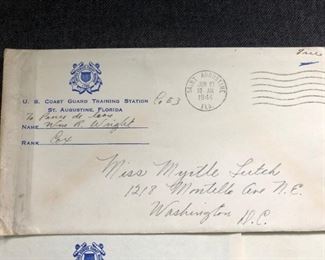 Free
U. S. COAST GUARD TRAINING STATION
ST. AUGUSTINE, FLORIDA
Co E3
To Ponce de Leon
NAME Wm R. Wright
RANK Cox
SAINT AUGUSTINE
JUN 17
10 AM
1944
FLA.
Miss Myrtle
1218 Montello Ave N.E.
Washington
D.C.